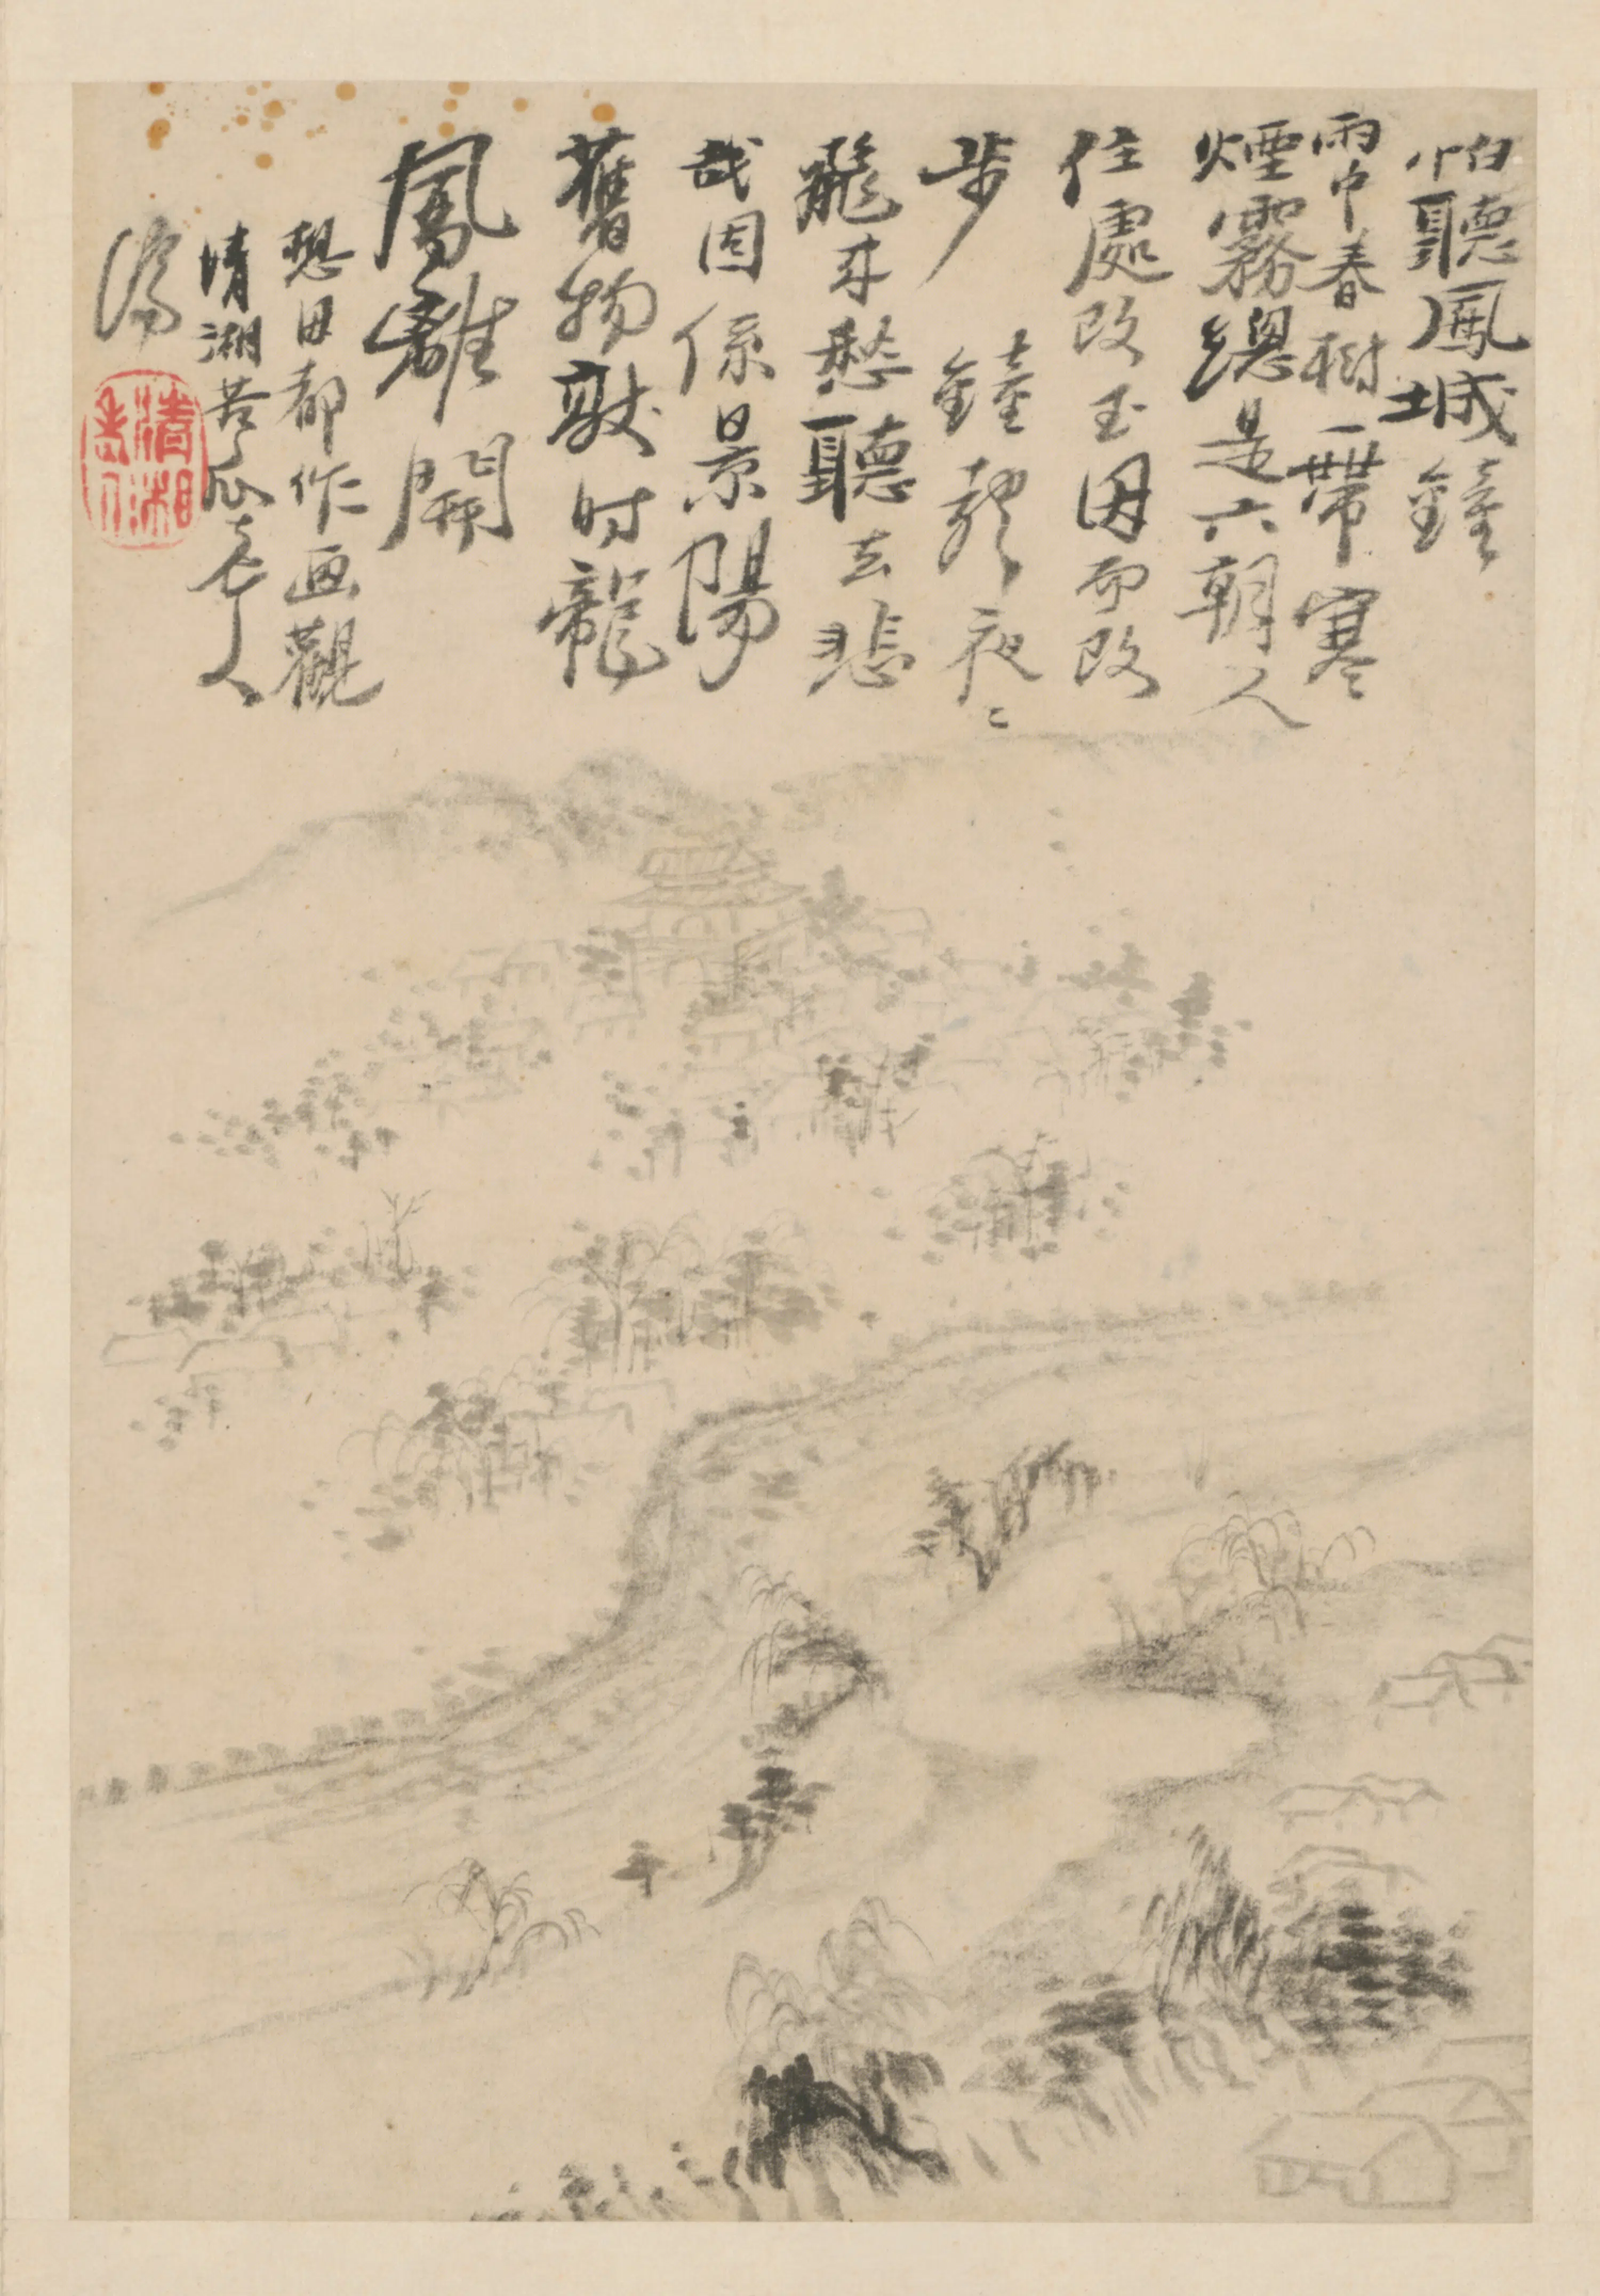 怕聽鳳城鐘
雨中春樹一帶寒
煙霧總是六朝人
住處改玉因而改
步鐘聲夜〻
飛來愁聽去悲
哉因係景陽
舊物时龍
鳳離開
想都作画觀
清湘苦瓜老人
濟
清湘老人